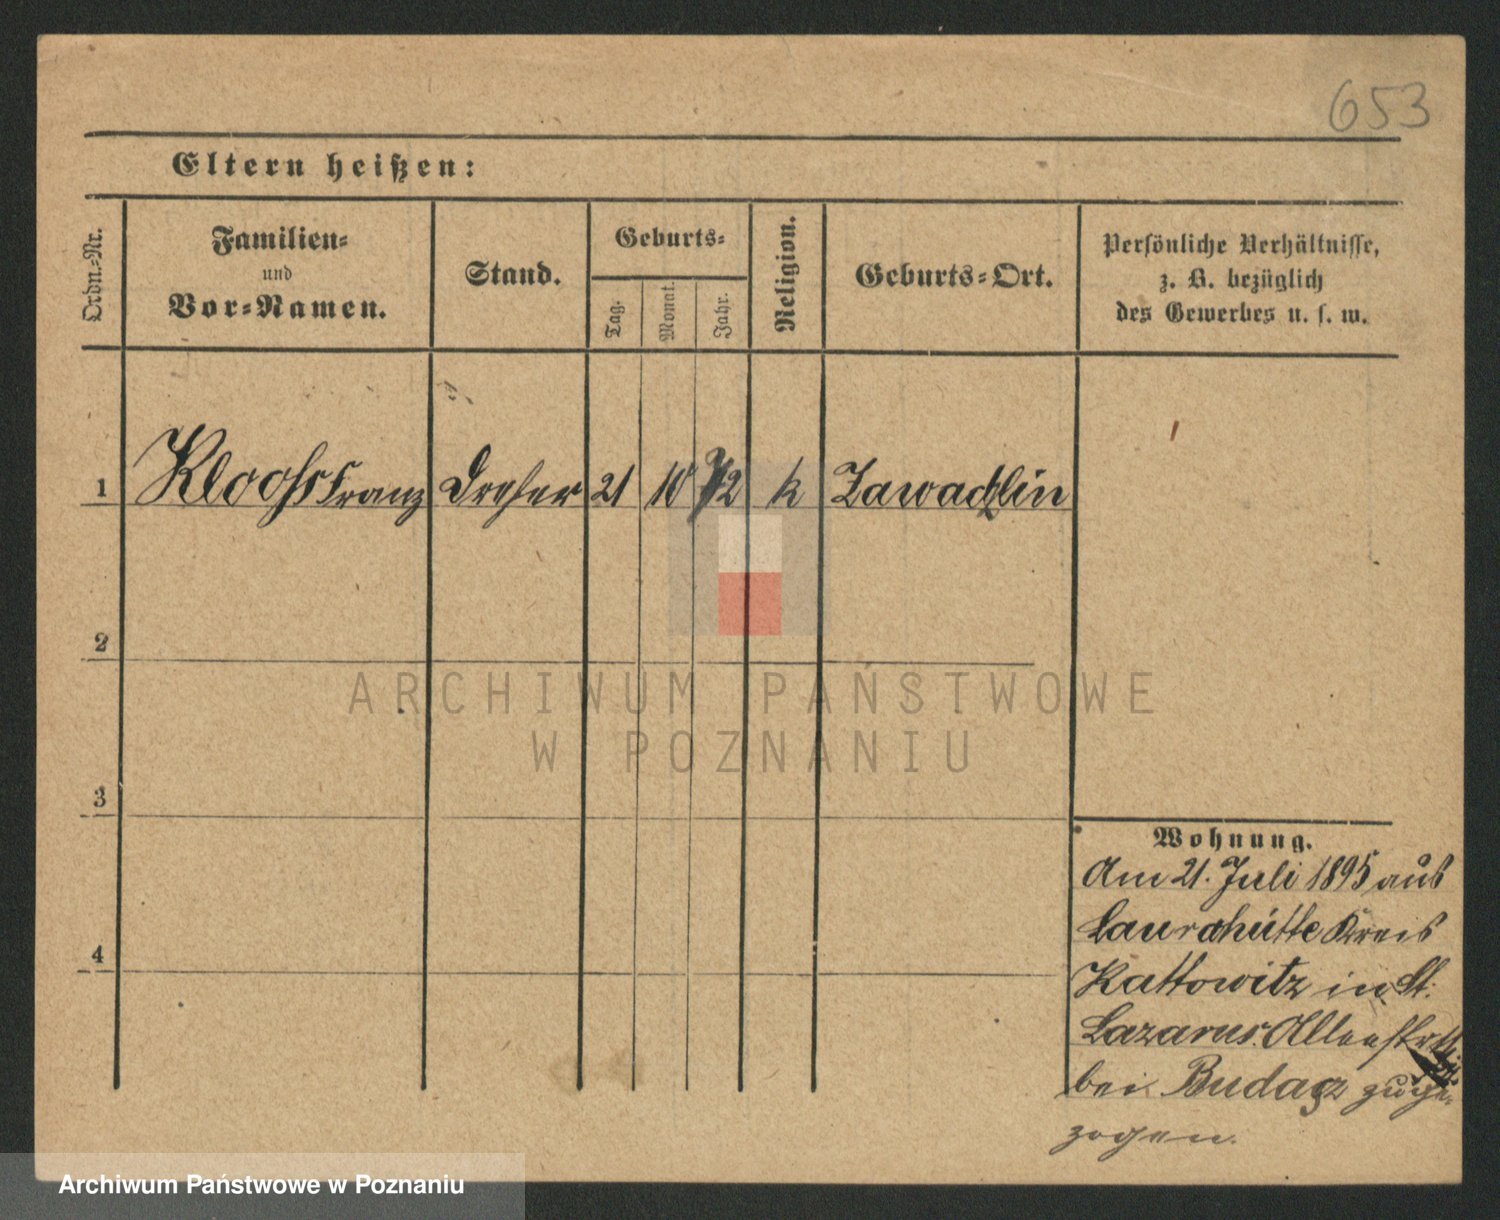 653
Eltern heißen:
Ordn.-Nr.
Familien-
und
Vor-Namen.
Stand.
Geburts-
Tag.
Monat.
Jahr.
Religion.
Geburts-Ort.
Persönliche Verhältnisse,
z. B. bezüglich
des Gewerbes u. s. w.
1 Klooss Franz Dreher 21 10 72 k Zawadzlin
2
3
4
Wohnung.
Am 21. Juli 1895 aus
Laurahütte Kreis
Kattowitz in St.
Lazarus.
bei Budasz zuge-
zogen.
ARCHIWUM PAŃSTWOWE
W POZNANIU
Archiwum Państwowe w Poznaniu